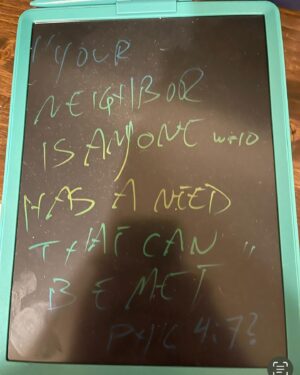 "YOUR
NEIGHBOR
IS ANYONE WHO
HAS A NEED
THAT CAN
BE MET"
4:7?